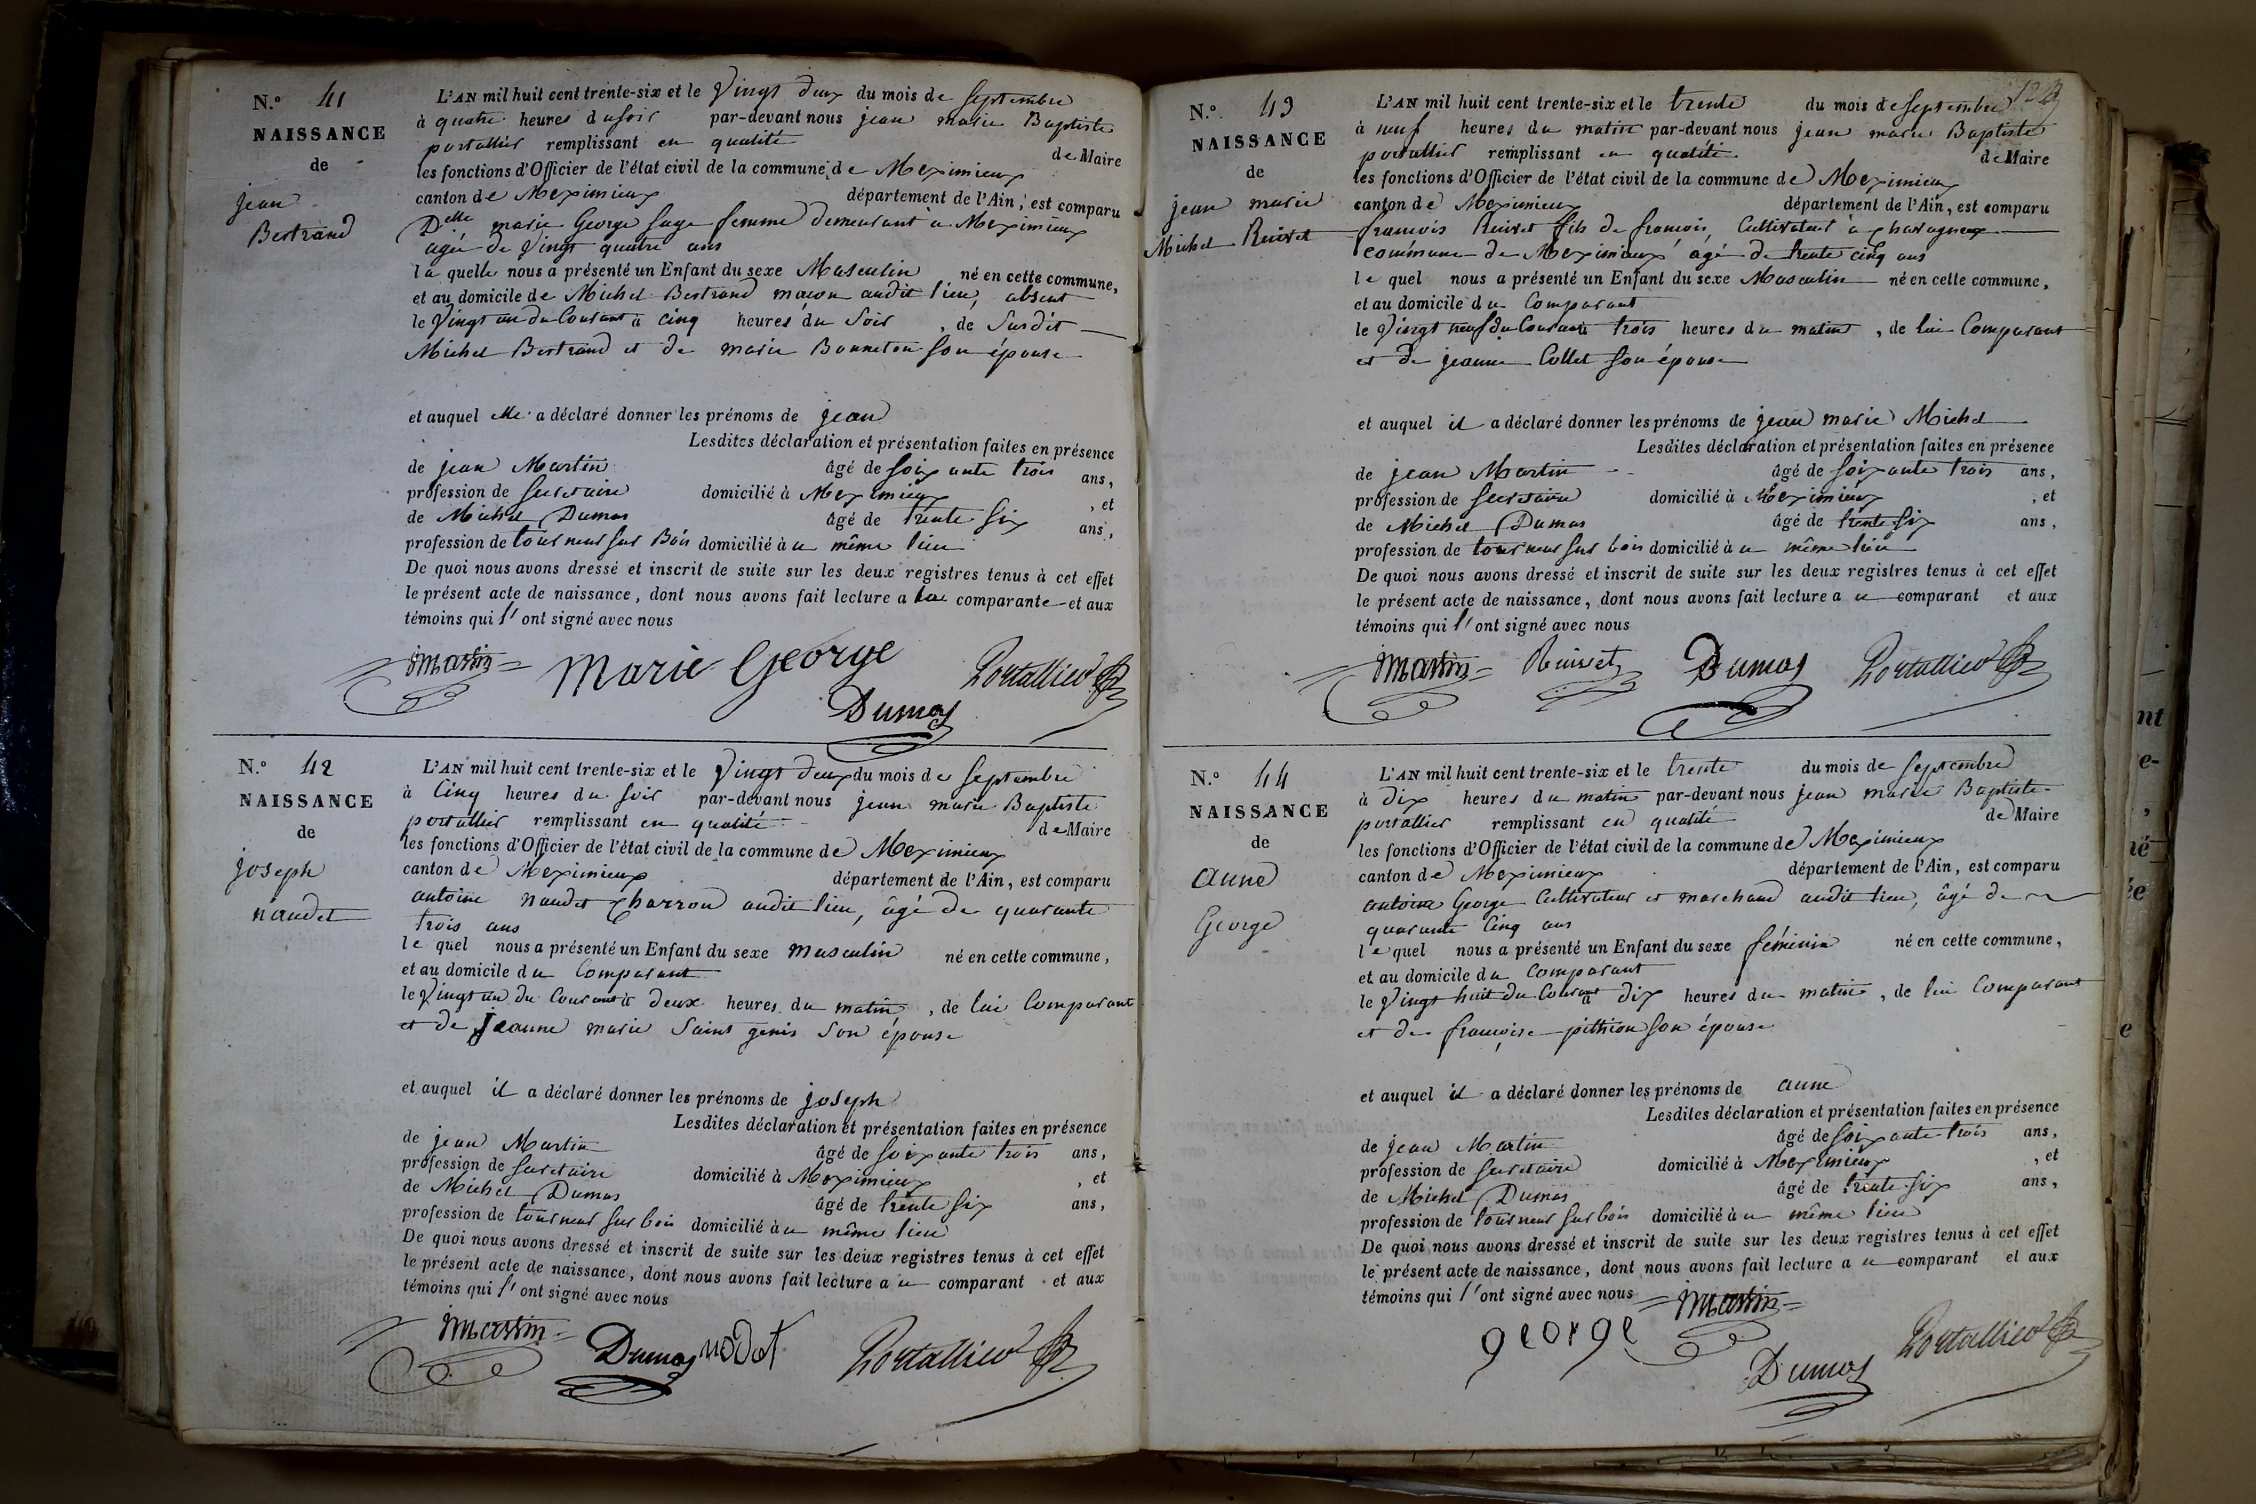 N.º 41
NAISSANCE
de
jean
Bertrand
L'AN mil huit cent trente-six et le Vingt deux du mois de Septembre
à quatre heures du soir par-devant nous jean marie Baptiste
portallier remplissant en qualité de Maire
les fonctions d'Officier de l'état civil de la commune de Meximieux
canton de Meximieux département de l'Ain, est comparu
Delle marie George sage femme demeurant à Meximieux
agée de Vingt quatre ans
la quelle nous a présenté un Enfant du sexe Masculin né en cette commune,
et au domicile de Michel Bertrand maçon audit lieu, absent
le Vingt un du Courant à cinq heures du Soir, de Susdit
Michel Bertrand et de marie Bonneton son épouse
et auquel elle a déclaré donner les prénoms de jean
Lesdites déclaration et présentation faites en présence
de jean Martin âgé de soixante trois ans,
profession de secretaire domicilié à Meximieux, et
de Michel Dumas âgé de trente six ans,
profession de tourneur sur Bois domicilié à u même lieu
De quoi nous avons dressé et inscrit de suite sur les deux registres tenus à cet effet
le présent acte de naissance, dont nous avons fait lecture a la comparante et aux
témoins qui l'ont signé avec nous
Martin Marie George Portallier
Dumas
N.º 42
NAISSANCE
de
joseph
naudet
L'AN mil huit cent trente-six et le Vingt deux du mois de Septembre
à Cinq heures du soir par-devant nous jean marie Baptiste
portallier remplissant en qualité de Maire
les fonctions d'Officier de l'état civil de la commune de Meximieux
canton de Meximieux département de l'Ain, est comparu
antoine naudet Charron audit lieu, âgé de quarante
trois ans
le quel nous a présenté un Enfant du sexe masculin né en cette commune,
et au domicile du Comparant
le Vingt un du Courant à deux heures du matin, de lui Comparant
et de Jeanne marie Saint genis son épouse
et auquel il a déclaré donner les prénoms de joseph
Lesdites déclaration et présentation faites en présence
de jean Martin âgé de soixante trois ans,
profession de secretaire domicilié à Meximieux, et
de Michel Dumas âgé de trente six ans,
profession de tourneur sur bois domicilié à u même lieu
De quoi nous avons dressé et inscrit de suite sur les deux registres tenus à cet effet
le présent acte de naissance, dont nous avons fait lecture a u comparant et aux
témoins qui l'ont signé avec nous
Martin Dumas nodet Portallier
N.º 43
NAISSANCE
de
jean marie
Michel Ruivet
L'AN mil huit cent trente-six et le trente du mois de Septembre
à neuf heures du matin par-devant nous jean marie Baptiste
portallier remplissant en qualité de Maire
les fonctions d'Officier de l'état civil de la commune de Meximieux
canton de Meximieux département de l'Ain, est comparu
francois Ruivet fils de francois, Cultivateur à Chavagneux
commune de Meximieux âgé de trente cinq ans
le quel nous a présenté un Enfant du sexe Masculin né en cette commune,
et au domicile du Comparant
le Vingt neuf du Courant à trois heures du matin, de lui Comparant
et de jeanne Collet son épouse
et auquel il a déclaré donner les prénoms de jean marie Michel
Lesdites déclaration et présentation faites en présence
de jean Martin âgé de soixante trois ans,
profession de secretaire domicilié à Meximieux, et
de Michel Dumas âgé de trente six ans,
profession de tourneur sur bois domicilié à u même lieu
De quoi nous avons dressé et inscrit de suite sur les deux registres tenus à cet effet
le présent acte de naissance, dont nous avons fait lecture a u comparant et aux
témoins qui l'ont signé avec nous
Martin Ruivet Dumas Portallier
N.º 44
NAISSANCE
de
anne
George
L'AN mil huit cent trente-six et le trente du mois de Septembre
à dix heures du matin par-devant nous jean marie Baptiste
portallier remplissant en qualité de Maire
les fonctions d'Officier de l'état civil de la commune de Meximieux
canton de Meximieux département de l'Ain, est comparu
antoine George Cultivateur et marchand audit lieu, âgé de
quarante Cinq ans
le quel nous a présenté un Enfant du sexe féminin né en cette commune,
et au domicile du Comparant
le Vingt huit du Courant à dix heures du matin, de lui Comparant
et de françoise pithion son épouse
et auquel il a déclaré donner les prénoms de anne
Lesdites déclaration et présentation faites en présence
de jean Martin âgé de soixante trois ans,
profession de secretaire domicilié à Meximieux, et
de Michel Dumas âgé de trente six ans,
profession de tourneur sur bois domicilié à u même lieu
De quoi nous avons dressé et inscrit de suite sur les deux registres tenus à cet effet
le présent acte de naissance, dont nous avons fait lecture a u comparant et aux
témoins qui l'ont signé avec nous Martin
george Dumas Portallier